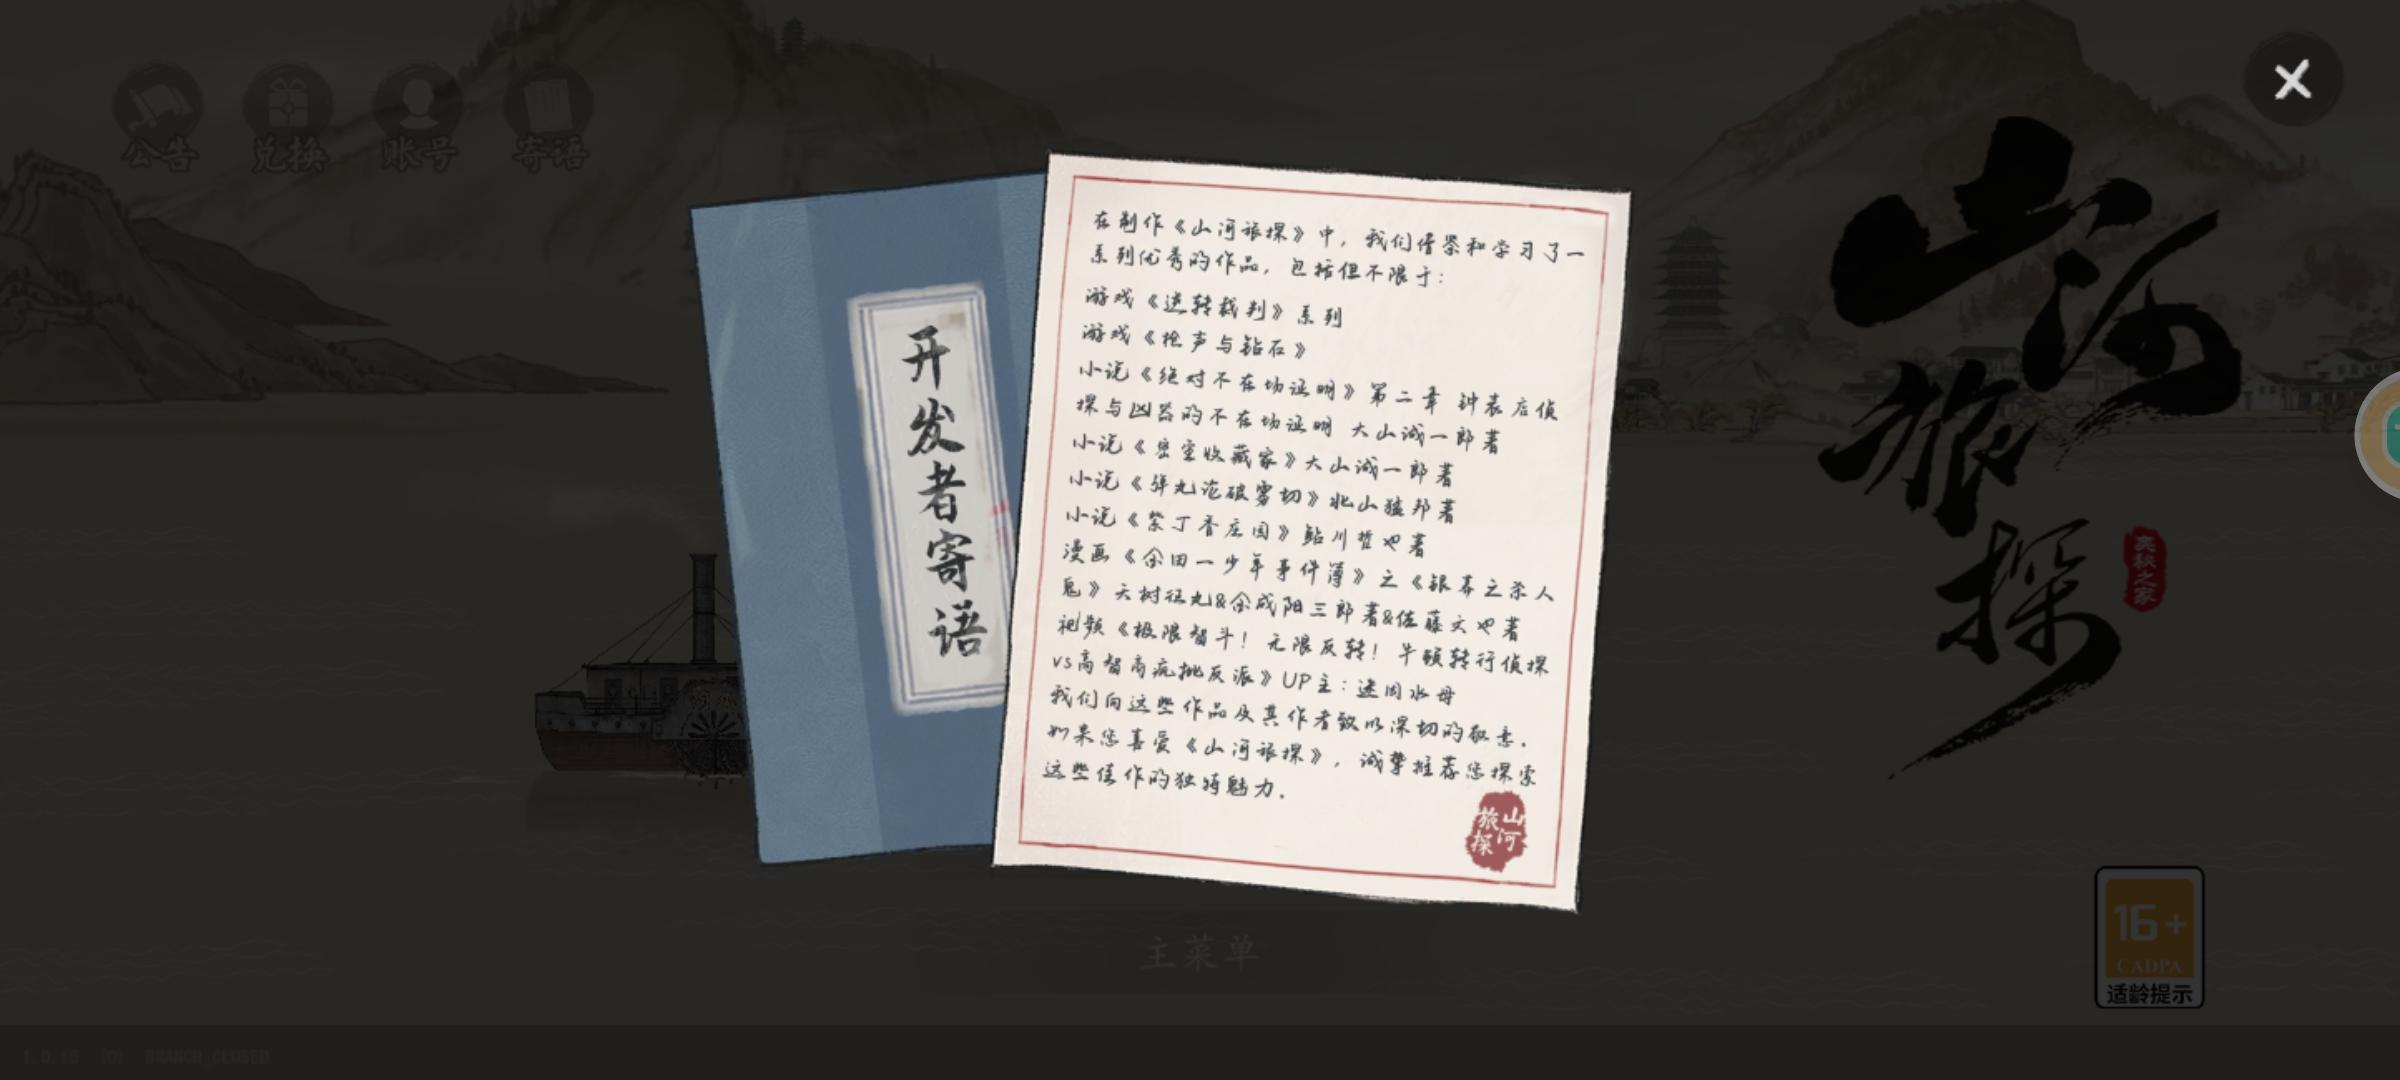 公告
兑换
账号
寄语
开发者寄语
在制作《山河旅探》中，我们借鉴和学习了一
系列优秀的作品，包括但不限于：
游戏《逆转裁判》系列
游戏《枪声与钻石》
小说《绝对不在场证明》第二章 钟表店侦
探与凶器的不在场证明 大山诚一郎著
小说《密室收藏家》大山诚一郎著
小说《弹丸论破雾切》北山猛邦著
小说《紫丁香庄园》鲇川哲也著
漫画《金田一少年事件薄》之《银幕之杀人
鬼》天树征丸&金成阳三郎著&佐藤文也著
视频《极限智斗！无限反转！牛顿转行侦探
vs高智商疯批反派》UP主：迷因水母
我们向这些作品及其作者致以深切的敬意.
如果您喜爱《山河旅探》，诚挚推荐您探索
这些佳作的独特魅力.
山河
旅探
山河旅探
奥秘之家
主菜单
16+
CADPA
适龄提示
1.0.15 [0] BRANCH_CLOSED